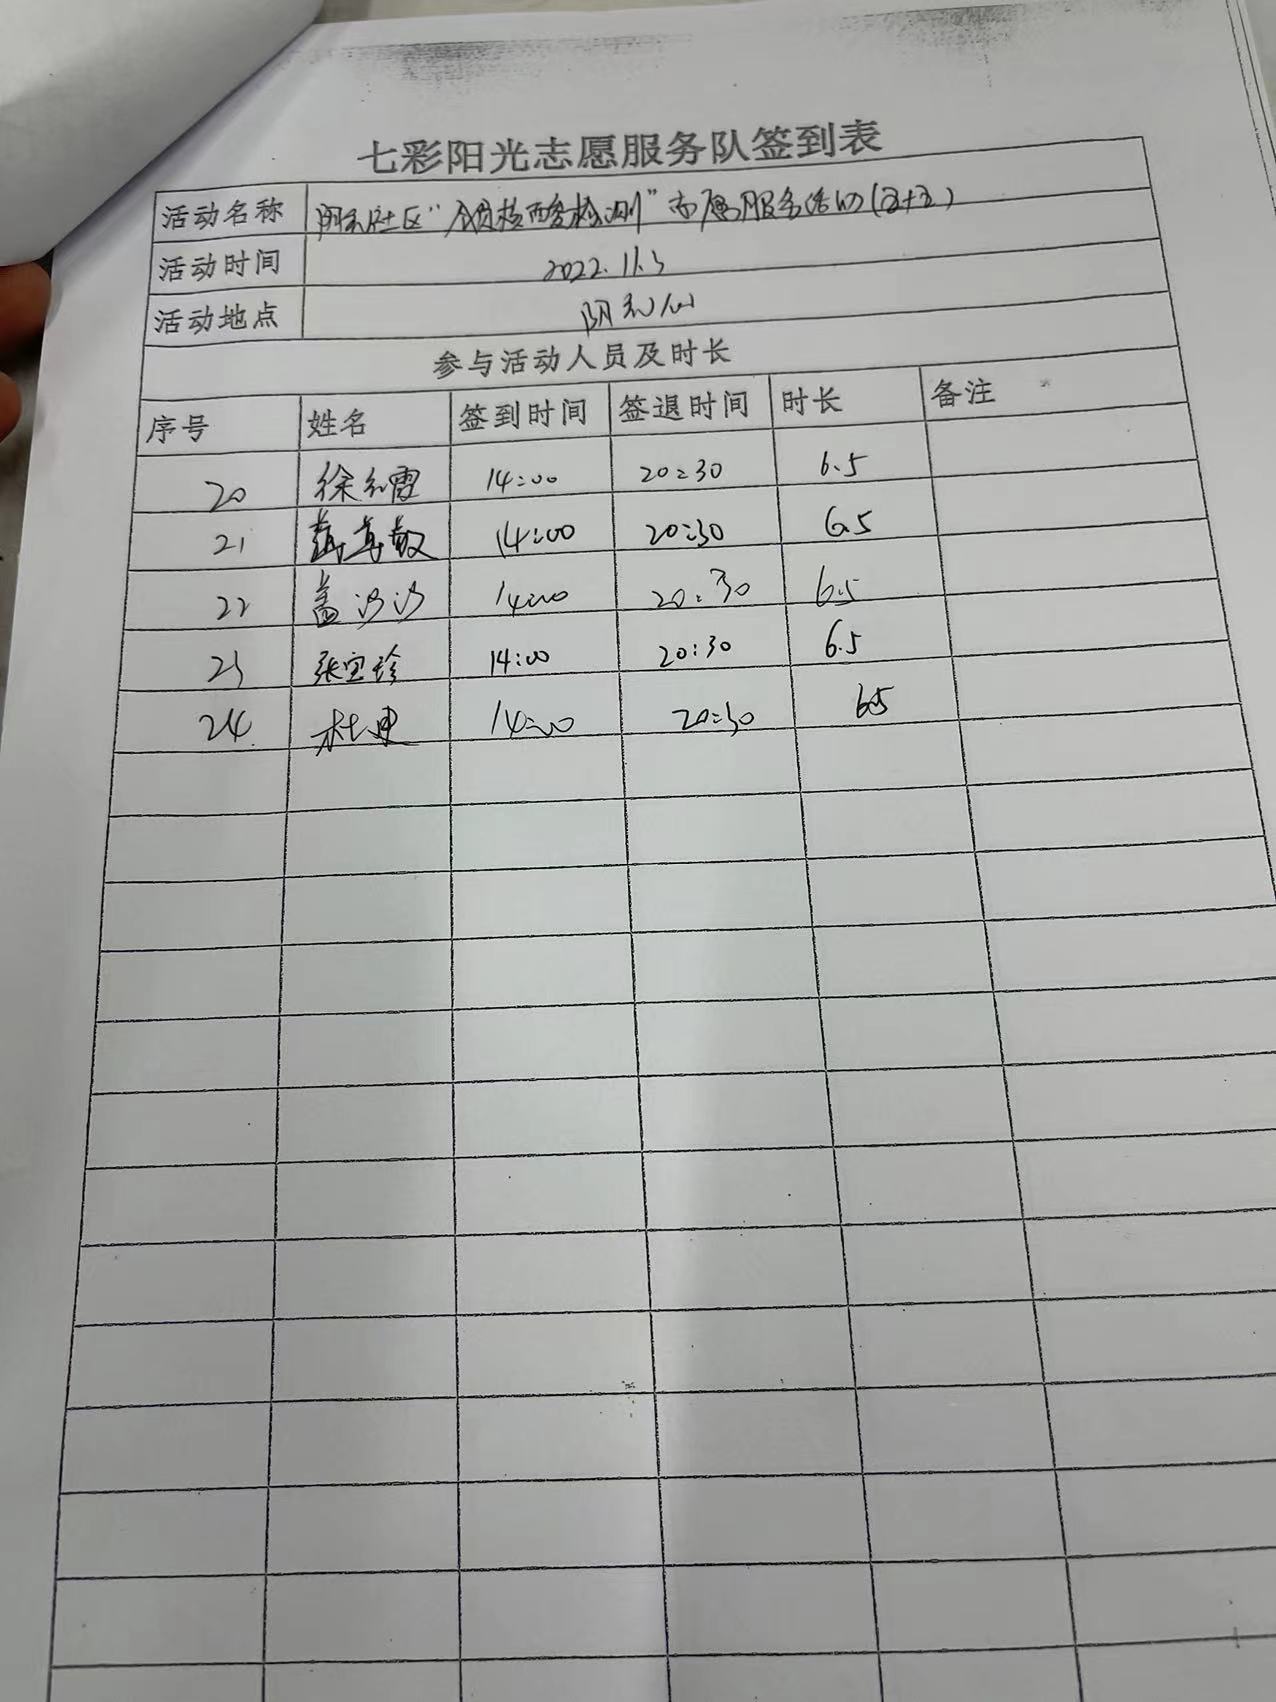 七彩阳光志愿服务队签到表
活动名称 阳和社区“全员核酸检测”志愿服务活动
活动时间 2022.11.3
活动地点 阳和
参与活动人员及时长
序号 姓名 签到时间 签退时间 时长 备注
20 徐红霞 14:00 20:30 6.5
21 14:00 20:30 6.5
22 盖沙沙 14:00 20:30 6.5
23 张宝珍 14:00 20:30 6.5
24 杜 14:00 20:30 6.5